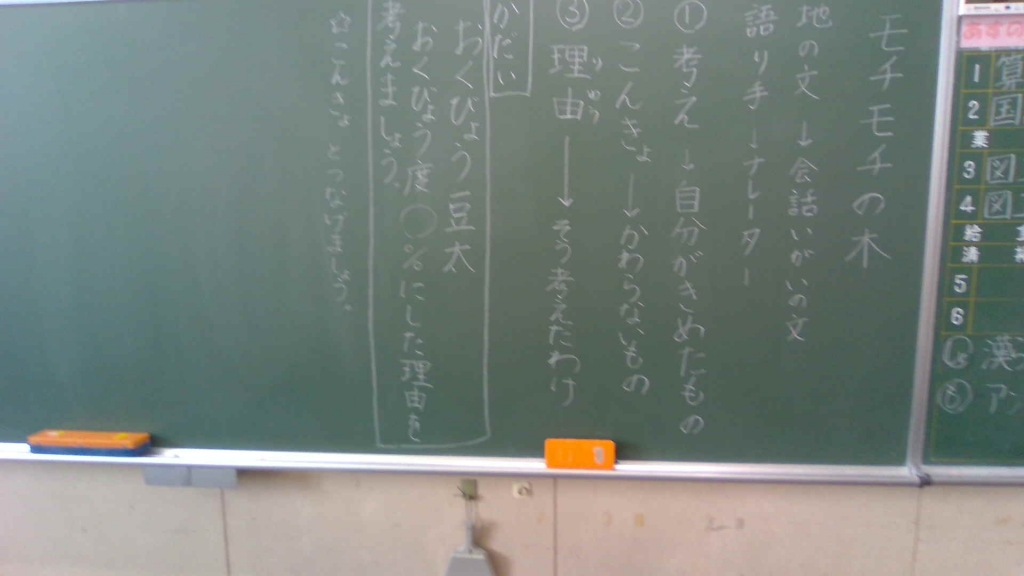 モチモチの木
地の文→会話いがいの文
語り手→ナレーター
①考え→自分がきめたもの
②こんきょ→かわらないもの
③理由→そう考えたわけ
りゆう
かだい
おくびょう豆太
おくびょう度○%にした理由を
考えましょう。
☆こんきょとつなげましょう。
あすの
1 算
2 国
業
3 図
4 図工
給
清
5
6
漢